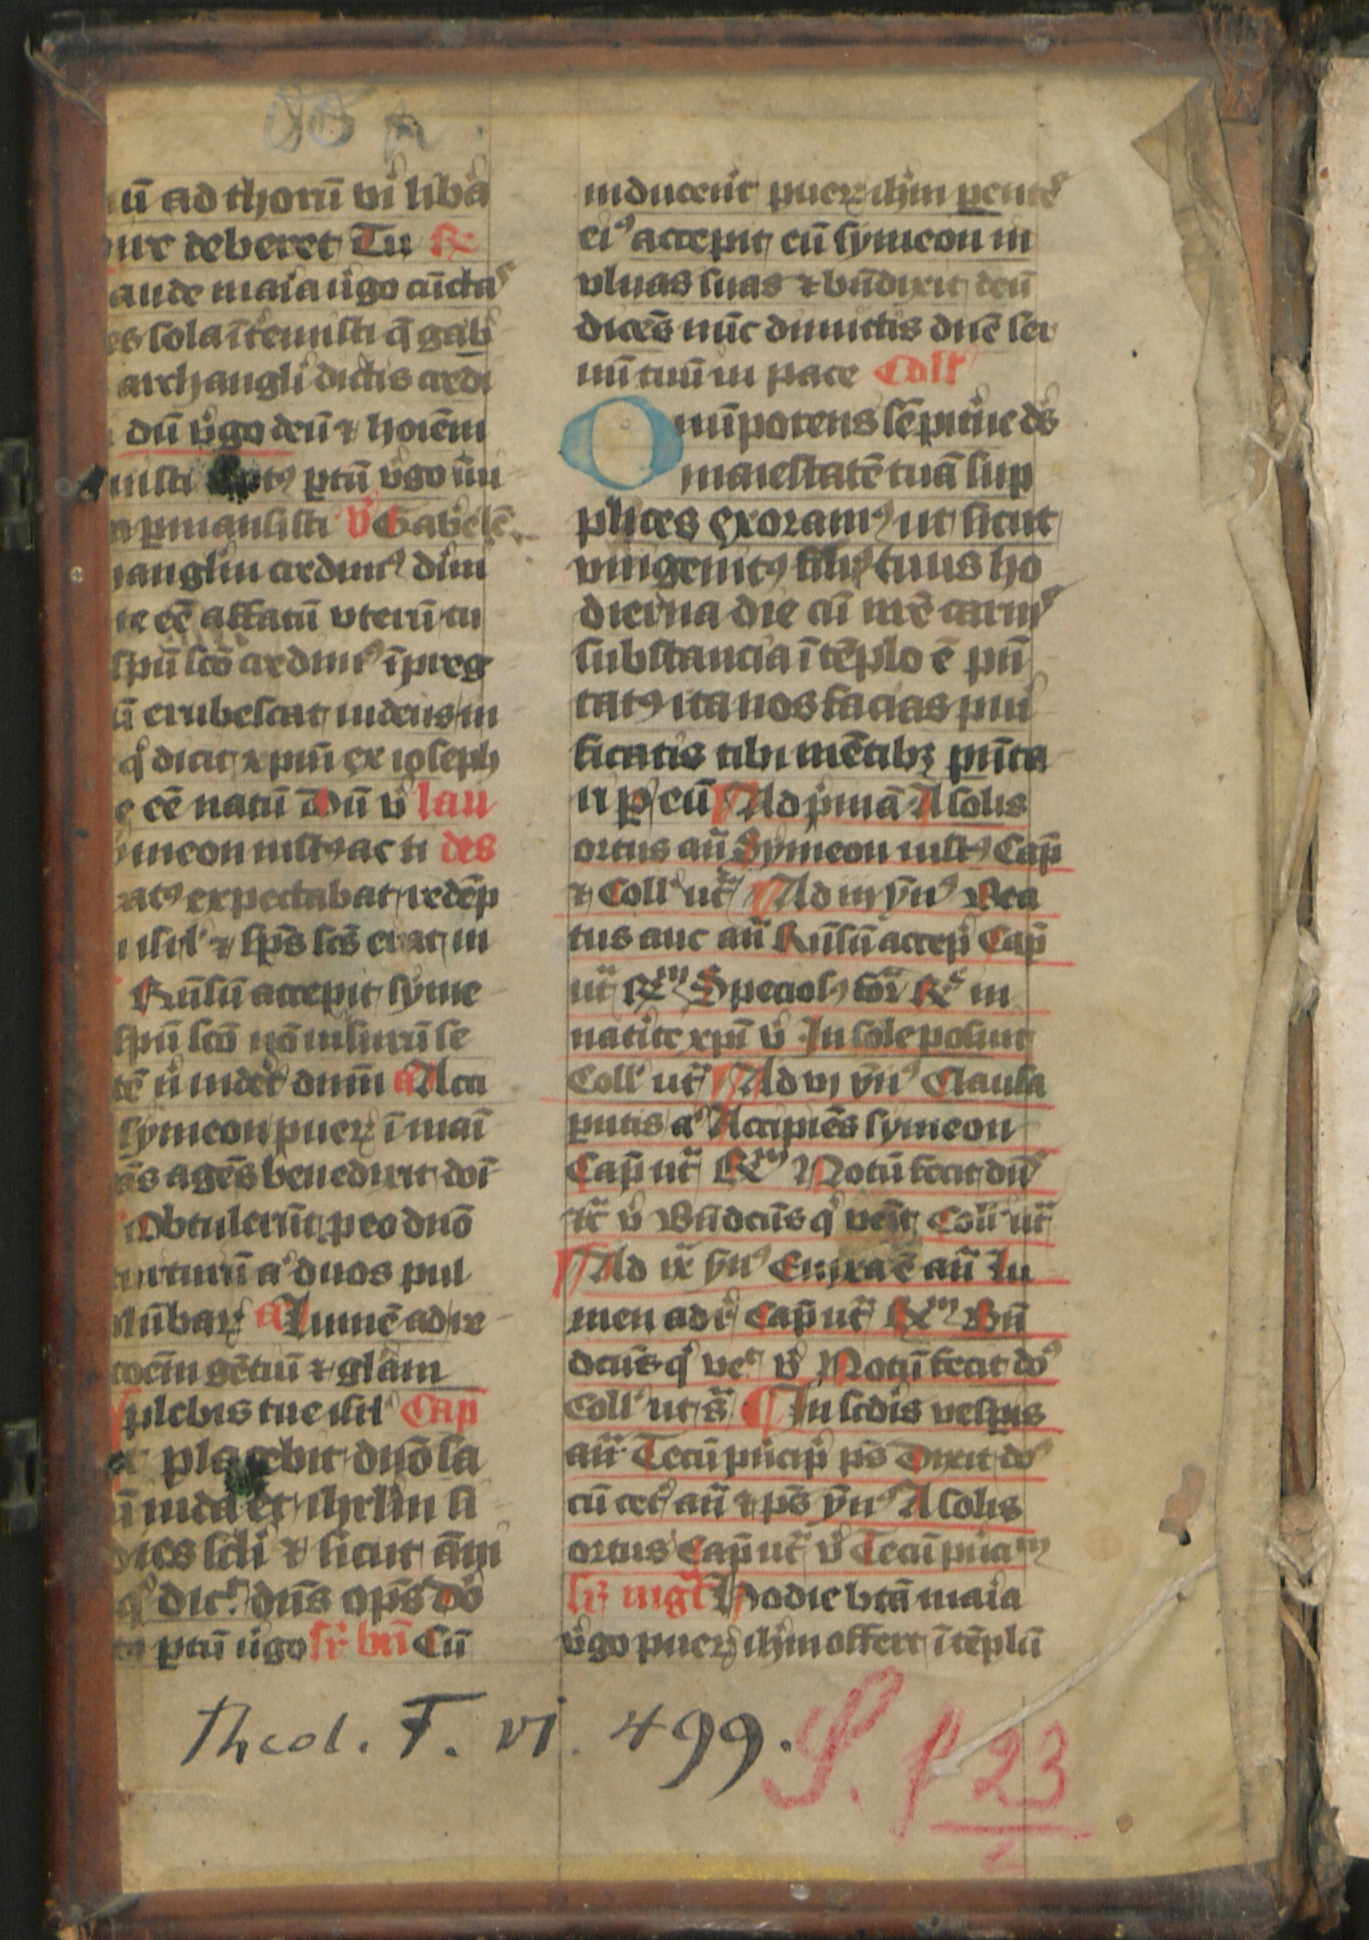 ū ad thorū vī libā
ure deberet Tu R
aude maīa ūgo cūcta
es sola ītemisti q̄ gab
archangli dictis credi
dū v̄go deū ⁊ hoiēm
nisti ptū v̄go īu
ꝑmansisti v̄ Gabelē
angliu credimꝰ dīni
te eē affatū vterū tu
spū scō credimꝰ īpreg
ū erubescat iudeus in
q̄ dicit xpm̄ ex ioseph
e eē natū Dū v̄ lau
imeon iustꝰ ac ti des
atꝰ expectabat redēp
isrl ⁊ sp̄s sc̄s erat in
Rn̄sū accepit syme
spū scō nō visurū se
tē n̄ videret dn̄m a Acci
symeon pueꝝ ī manī
as agēs benedixit dōi
Obtulerūt ꝓ eo dn̄o
turturū aꝰ duos pul
lūbaꝝ a Lumē ad re
cōem gētiū ⁊ glām
plebis tue isrl Cap̄
et placebit dn̄o sa
ū iuda et ihrlm si
dies scli ⁊ sicut ām
q̄ dic dn̄s op̄s dō
ptū ūgo sr̄ bn̄ Cū
inducerīt pueꝝ ihm pentē
eiꝰ accepit eū symeon in
vlnas suas ⁊ bn̄dixit deū
dicēs nūc dimictis dn̄e ser
uū tuū in pace Coll
Omīpotens sēpitne ds̄
maiestatē tuā sup
plices exoramꝰ ut sicut
vnigenitꝰ filiꝰ tuus ho
dierna die cū nr̄e carnꝰ
substancia ī tēplo ē pn̄
tatꝰ ita nos facias puī
ficatis tibi mētibꝫ pn̄ta
ri ꝑ eū ¶ Ad p̄mā A solis
ortus añ Symeon iustꝰ Cap̄
⁊ Coll ut ¶ Ad iij ynꝰ Bea
tus auc añ Rn̄sū accep̄ Cap̄
ut Rm Speciosꝰ for R in
natīte xpī v̄ In sole posuit
Coll ut ¶ Ad vj ynꝰ Clausa
putis aꝰ Accipiēs symeon
Cap̄ ut Rm Notū fecit dn̄
v̄ Bn̄dcūs q̄ venit Coll ut
¶ Ad ix ynꝰ Enixa ē añ Lu
men ad r Cap̄ ut Rm Bn̄
dcūs q̄ ve v̄ Notū fecit doꝰ
Coll ut s̄ ¶ In scdis vespis
añ Tecū pn̄cip̄ ps̄ Dixit doꝰ
cū cet añ ⁊ ps̄ ynꝰ A solis
ortus Cap̄ ut v̄ Tecū pn̄cim
sr̄ mgt Hodie btā maīa
v̄go pueꝝ ihm offert ī tēplū
Theol. F. vi. 499.
S. f 23